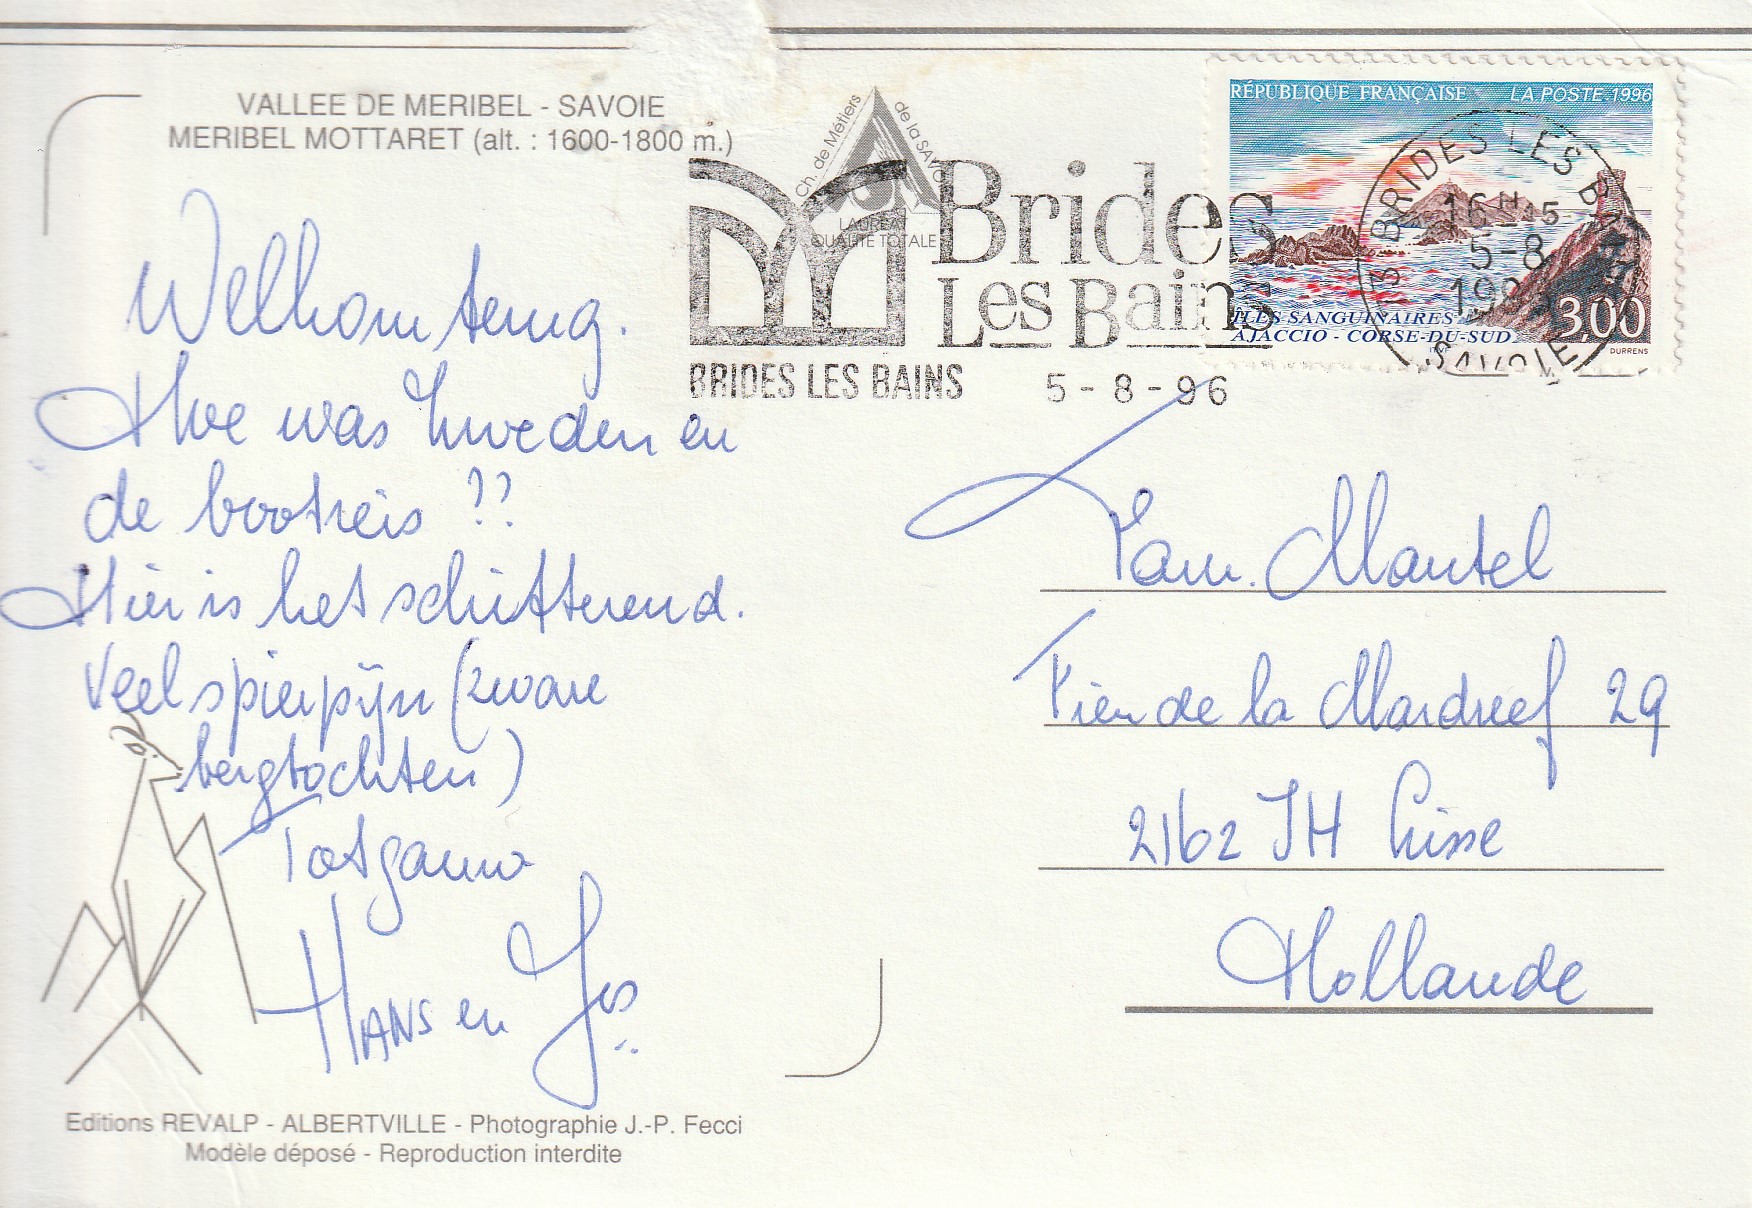 VALLEE DE MERIBEL - SAVOIE
MERIBEL MOTTARET (alt. : 1600-1800 m.)
Welkom terug.
Hoe was Zweden en
de bootreis ??
Hier is het schitterend.
Veel spierpijn (zware
bergtochten)
Tot gauw
HANS en Jos
Editions REVALP - ALBERTVILLE - Photographie J.-P. Fecci
Modèle déposé - Reproduction interdite
Ch. de Métiers
de la SAVO
LAURÉAT
QUALITÉ TOTALE
Brides
Les Bains
BRIDES LES BAINS 5-8-96
RÉPUBLIQUE FRANÇAISE LA POSTE 1996
ILES SANGUINAIRES
AJACCIO - CORSE-DU-SUD
3,00
DURRENS
73 BRIDES LES BAINS
16H15
5-8
1996
SAVOIE
Fam. Mantel
v de la Mardreef 29
2162 JH Lisse
Hollande